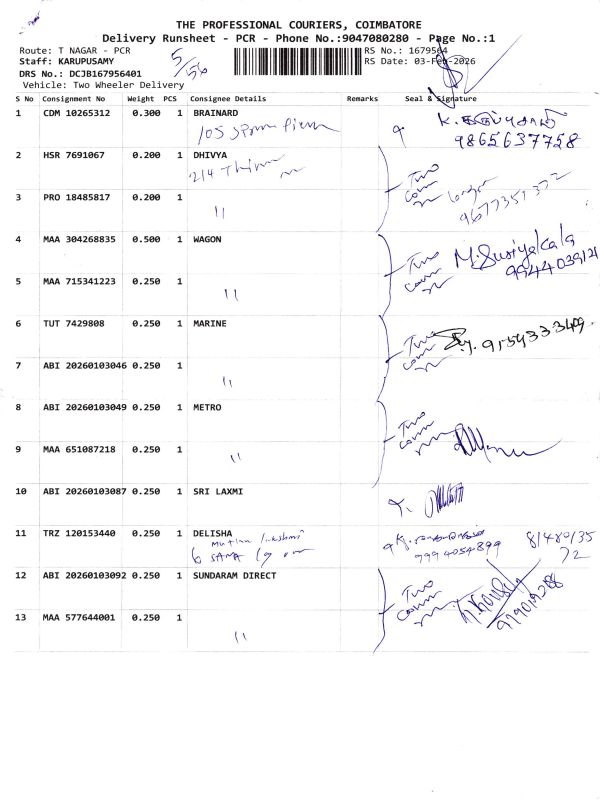 THE PROFESSIONAL COURIERS, COIMBATORE
Delivery Runsheet - PCR - Phone No.:9047080280 - Page No.:1
Route: T NAGAR - PCR
Staff: KARUPUSAMY
DRS No.: DCJB167956401
Vehicle: Two Wheeler Delivery
5/56
RS No.: 1679564
RS Date: 03-Feb-2026
S No Consignment No Weight PCS Consignee Details Remarks Seal & Signature
1 CDM 10265312 0.300 1 BRAINARD
105
9865637758
2 HSR 7691067 0.200 1 DHIVYA
214
Two
3 PRO 18485817 0.200 1
"
9677351372
4 MAA 304268835 0.500 1 WAGON
Two M. Susiyakala
5 MAA 715341223 0.250 1
"
9944039121
6 TUT 7429808 0.250 1 MARINE
Two 9159333409
7 ABI 20260103046 0.250 1
"
8 ABI 20260103049 0.250 1 METRO
Two
9 MAA 651087218 0.250 1
"
10 ABI 20260103087 0.250 1 SRI LAXMI
11 TRZ 120153440 0.250 1 DELISHA
6
9994054899
81480135
72
12 ABI 20260103092 0.250 1 SUNDARAM DIRECT
Two
13 MAA 577644001 0.250 1
"